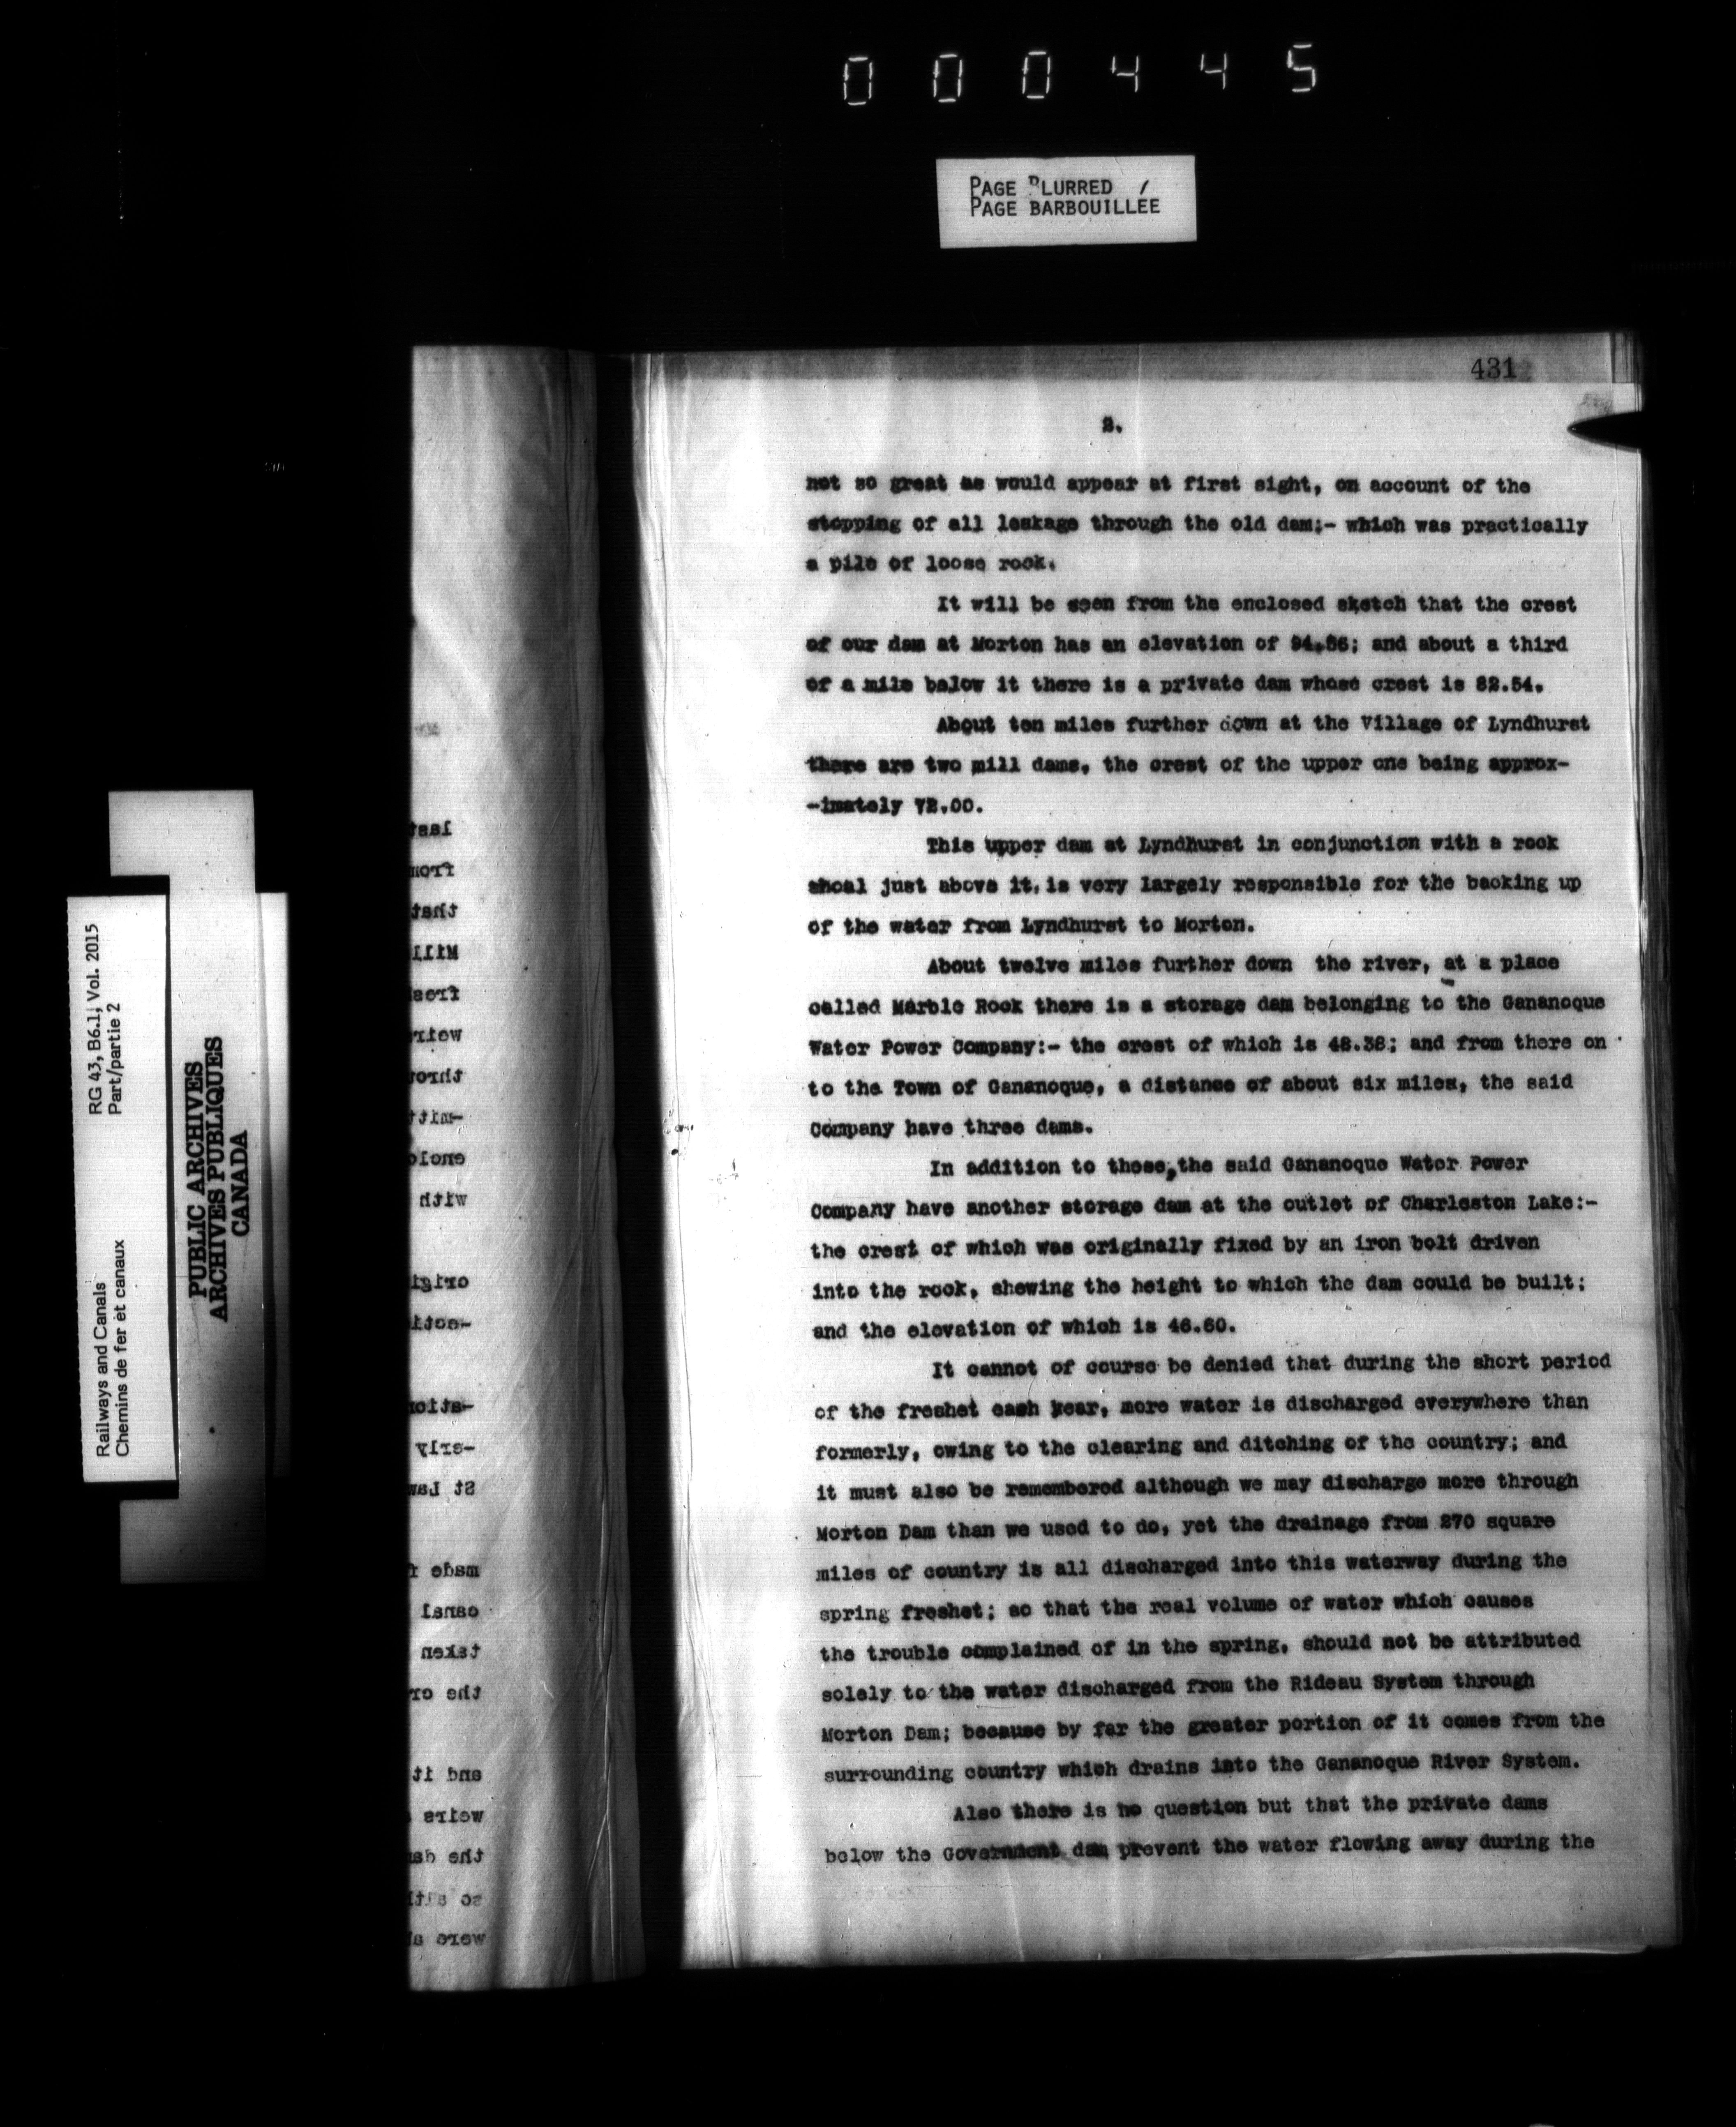 000445
PAGE BLURRED
PAGE BARBOUILLÉE
431
2.
not so great as would appear at first sight, on account of the
stopping of all leakage through the old dam;- which was practically
a pile of loose rock.
It will be seen from the enclosed sketch that the crest
of our dam at Morton has an elevation of 94.86; and about a third
of a mile below it there is a private dam whose crest is 82.54.
About ten miles further down at the Village of Lyndhurst
there are two mill dams, the crest of the upper one being approx-
-imately 72.00.
This upper dam at Lyndhurst in conjunction with a rock
shoal just above it, is very largely responsible for the backing up
of the water from Lyndhurst to Morton.
About twelve miles further down the river, at a place
called Marble Rock there is a storage dam belonging to the Gananoque
Water Power Company:- the crest of which is 48.38; and from there on
to the Town of Gananoque, a distance of about six miles, the said
Company have three dams.
In addition to these, the said Gananoque Water Power
Company have another storage dam at the outlet of Charleston Lake:-
the crest of which was originally fixed by an iron bolt driven
into the rock, shewing the height to which the dam could be built;
and the elevation of which is 46.60.
It cannot of course be denied that during the short period
of the freshet each year, more water is discharged everywhere than
formerly, owing to the clearing and ditching of the country; and
it must also be remembered although we may discharge more through
Morton Dam than we used to do, yet the drainage from 270 square
miles of country is all discharged into this waterway during the
spring freshet; so that the real volume of water which causes
the trouble complained of in the spring, should not be attributed
solely to the water discharged from the Rideau System through
Morton Dam; because by far the greater portion of it comes from the
surrounding country which drains into the Gananoque River System.
Also there is no question but that the private dams
below the Government dam prevent the water flowing away during the
RG 43, B6.1, Vol. 2015
Part/partie 2
Railways and Canals
Chemins de fer et canaux
PUBLIC ARCHIVES
ARCHIVES PUBLIQUES
CANADA